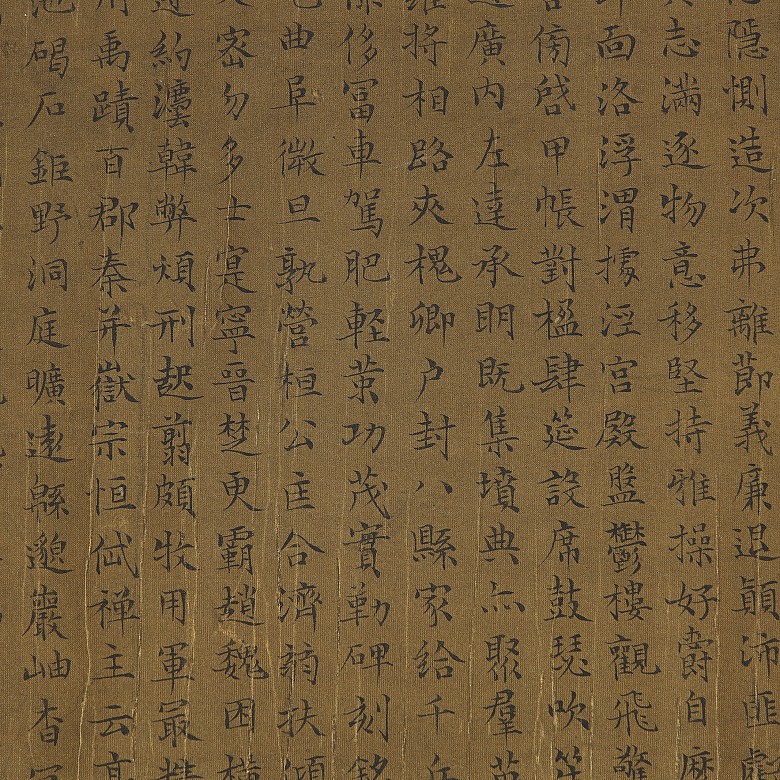 隱惻造次弗離節義廉退顛沛匪虧
志滿逐物意移堅持雅操好爵自縻
邙面洛浮渭據涇宮殿盤鬱樓觀飛驚
舍傍啓甲帳對楹肆筵設席鼓瑟吹笙
通廣內左達承明既集墳典亦聚羣英
羅將相路夾槐卿户封八縣家給千兵
祿侈冨車駕肥軽策功茂實勒碑刻銘
宅曲阜微旦孰營桓公匡合濟弱扶傾
乂密勿多士寔寧晉楚更霸趙魏困橫
遵約灋韓弊煩刑起翦頗牧用軍最精
州禹蹟百郡秦并嶽宗恒岱禅主云亭
池碣石鉅野洞庭曠遠緜邈巖岫杳冥